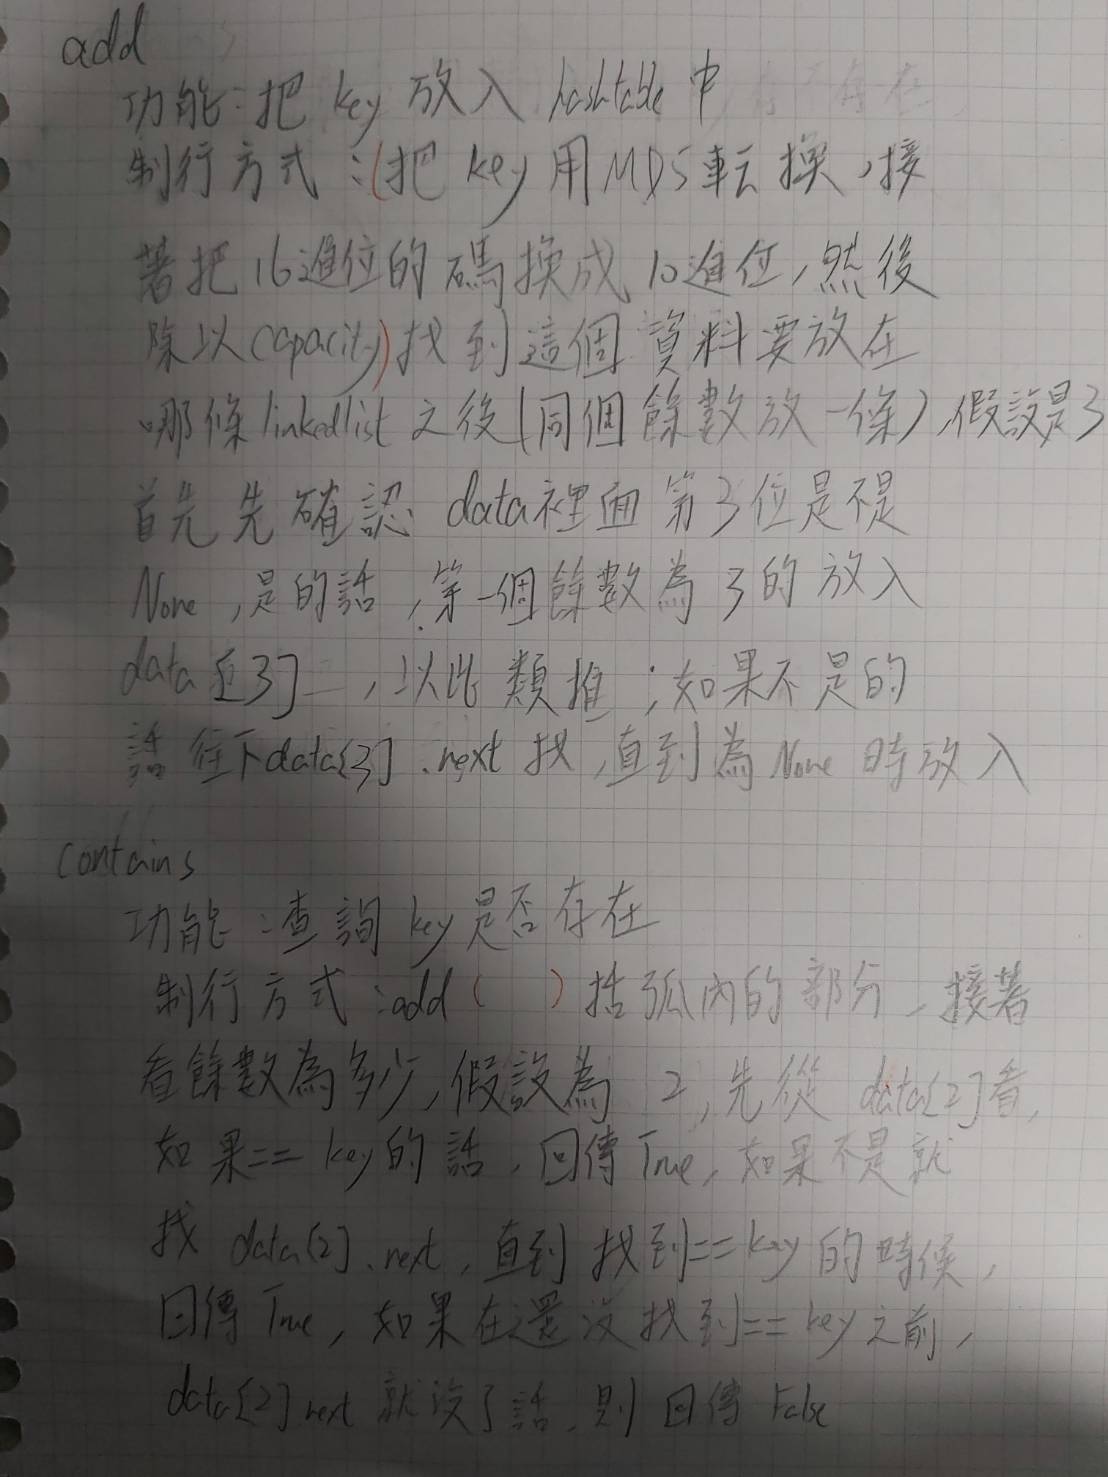 add
功能:把 key 放入 hashtable 中
制行方式:(把 key 用 MD5 転換,接
著把 16進位的碼換成 10進位,然後
除以 capacity)找到這個資料要放在
哪條 linkedlist 之後(同個餘數放一條),假設是3
首先先確認 data裡面第3位是不是
None,是的話,第一個餘數為3的放入
data [3],以此類推;如果不是的
話往下data[3].next 找,直到為 None 時放入
contains
功能:查詢 key 是否存在
制行方式:add ( ) 括弧內的部分,接著
看餘數為多少,假設為 2,先從 data[2]看,
如果== key的話,回傳True,如果不是就
找 data[2].next,直到找到==key的時候,
回傳 True,如果在還沒找到== key 之前,
data[2] next 就沒了話,則回傳 False